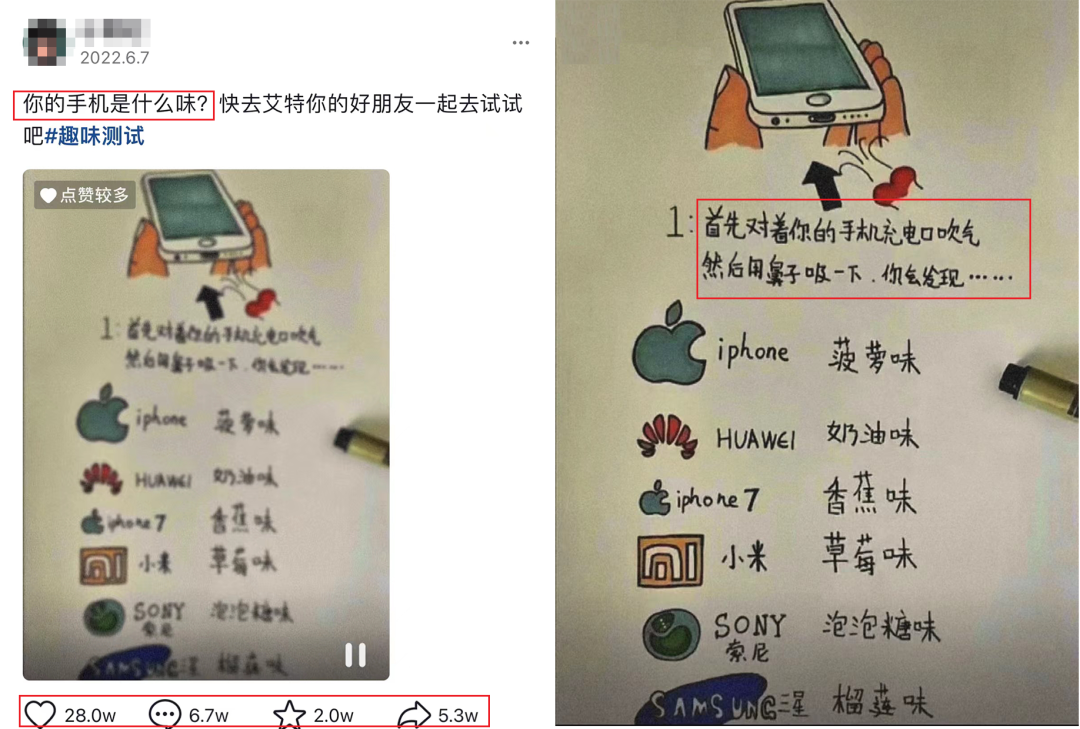 2022.6.7
你的手机是什么味? 快去艾特你的好朋友一起去试试
吧#趣味测试
点赞较多
1:首先对着你的手机充电口吹气
然后用鼻子吸一下,你会发现……
iphone 菠萝味
HUAWEI 奶油味
iphone 7 香蕉味
小米 草莓味
SONY 泡泡糖味
索尼
SAMSUNG三星 榴莲味
28.0w 6.7w 2.0w 5.3w
1:首先对着你的手机充电口吹气
然后用鼻子吸一下,你会发现……
iphone 菠萝味
HUAWEI 奶油味
iphone 7 香蕉味
小米 草莓味
SONY 泡泡糖味
索尼
SAMSUNG三星 榴莲味